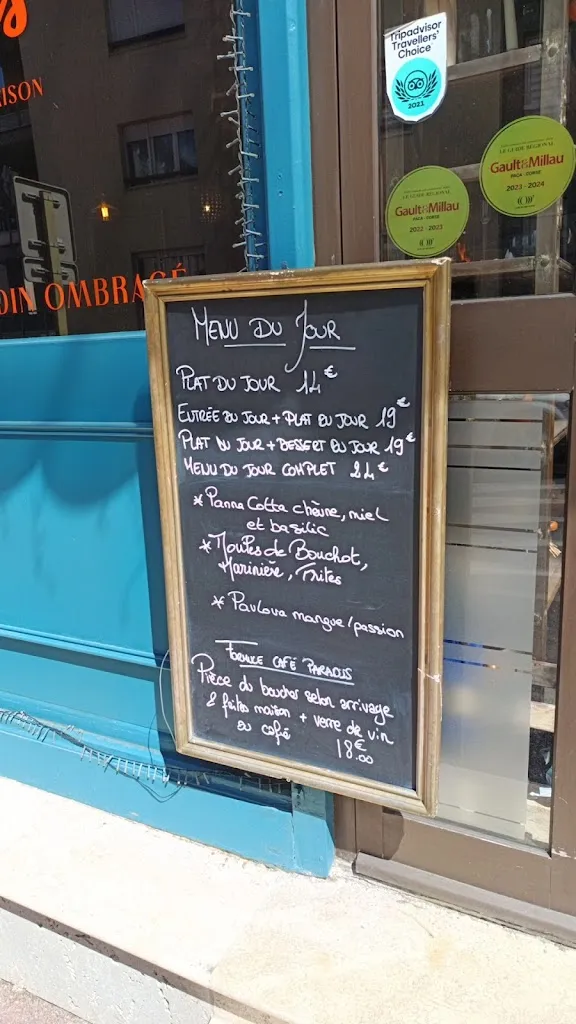 AISON
DIN OMBRAGÉ
Tripadvisor
Travellers'
Choice
2021
LE GUIDE RÉGIONAL
Gault&Millau
PACA - CORSE
2023 - 2024
LE GUIDE RÉGIONAL
Gault&Millau
PACA - CORSE
2022 - 2023
MENU DU JOUR
PLAT DU JOUR 14€
ENTRÉE DU JOUR + PLAT DU JOUR 19€
PLAT DU JOUR + DESSERT DU JOUR 19€
MENU DU JOUR COMPLET 24€
* Panna Cotta chèvre, miel
et basilic
* Moules de Bouchot,
Marinière, Frites
* Pavlova mangue/passion
FORMULE CAFÉ PARADIS
Pièce du boucher selon arrivage
& frites maison + verre de vin
ou café
18€.00